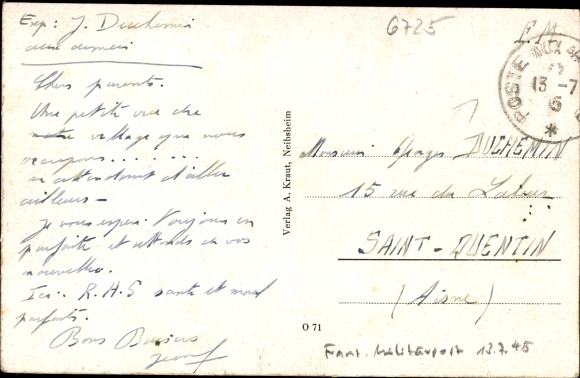 6725
F.M.
Exp: J. Duchemin
Chers parents.
Une petite vue du
notre village que nous
occupons......
en attendant d'aller
ailleurs -
Je vous espère toujours en
parfaite et attends de vos
nouvelles.
Ici. R.A.S santé et moral
parfaits.
Bons Baisers
Jean
Verlag A. Kraut, Neibsheim
O 71
POSTE AUX
13-7
*
Monsieur Georges DUCHEMIN
15 rue du Labour
SAINT-QUENTIN
(Aisne)
Franz. Militärpost 13.7.45